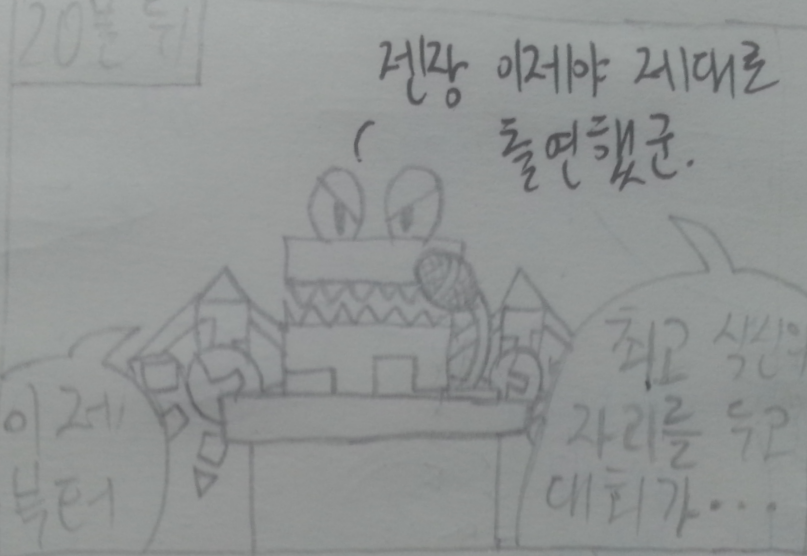 20분 뒤
젠장 이제야 제대로
돌연했군.
이제
부터
최고 식신의
자리를 두고
대회가...